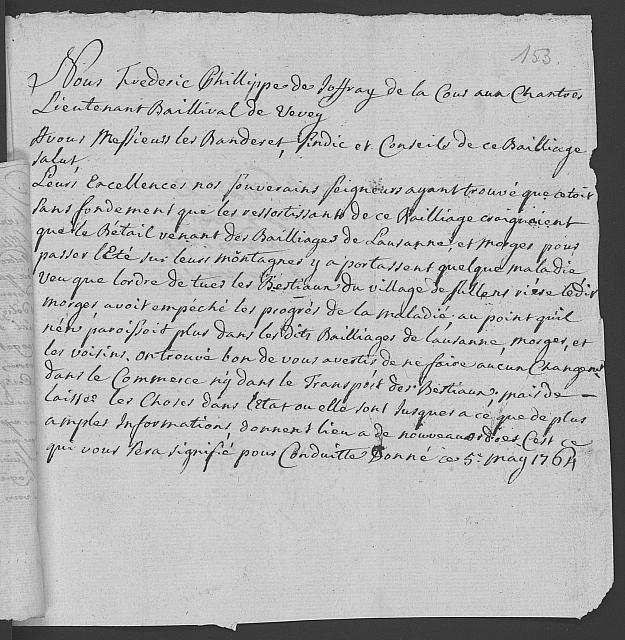 153.
Nous Frederic Phillippe de Joffray de la Cour aux Chantres
Lieutenant Baillival de Vevey
A vous Messieurs les Banderet, Sindic et Conseils de ce Bailliage
salut,
Leurs Excellences nos souverains seigneurs ayant trouvé que cetoit
sans fondement que les ressortissants de ce Bailliage craignoient
que le Bétail venant des Bailliages de Lausanne et Morges pour
passer l'Eté sur leurs montagnes y aportassent quelque maladie
veu que lordre de tuer les Bestiaux du village de sullens rière ledit
morges avoit empéché les progrés de la maladié au point qu'il
n'en paroissoit plus dans les dits Bailliages de lausanne, morges, et
les voisins, ont trouvé bon de vous avertir de ne faire aucun Changemt
dans le Commerce n'y dans le Transport des Bestiaux, mais de —
laisser les Choses dans l'Etat ou elle sont Jusques a ce que de plus
amples Informations donnent lieu a de nouveaux ordres C'est ce
qui vous sera signifié pour Conduitte Donné ce 5e may 1764